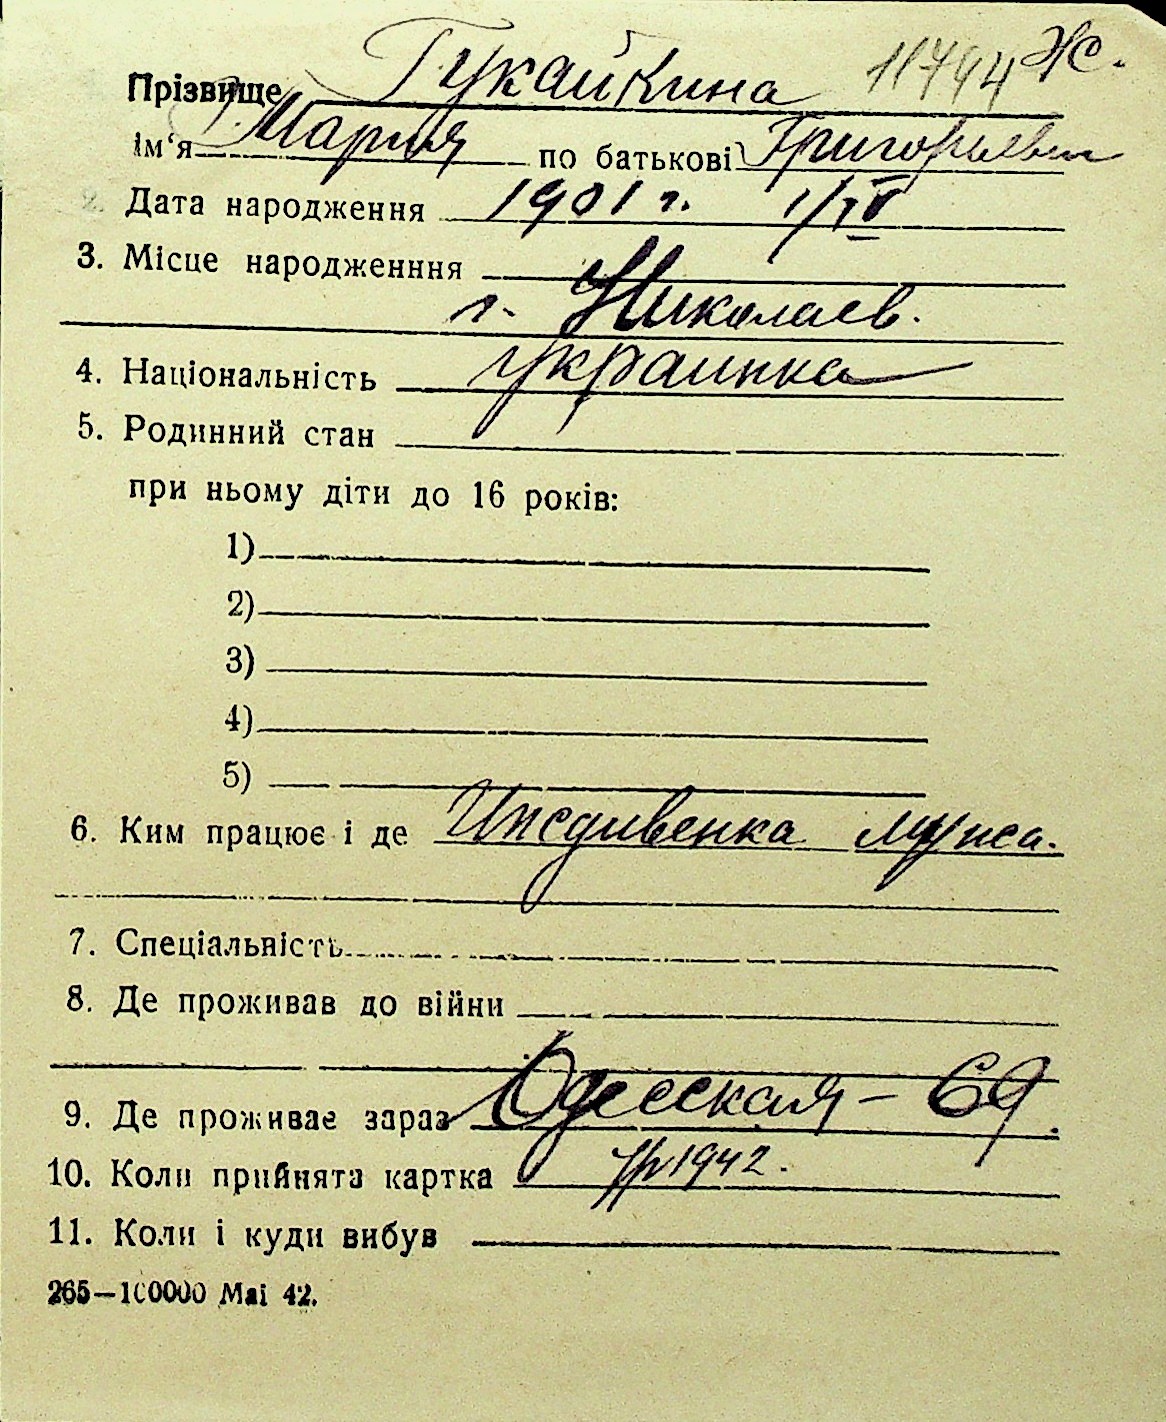 Прізвище Гукайкина 11794 Ж.
Ім‘я Мария по батькові Григорьевн
2. Дата народження 1901 г. 1/IV
3. Місце народженння
г. Николаев.
4. Національність украинка
5. Родинний стан
при ньому діти до 16 років:
1)
2)
3)
4)
5)
6. Ким працює і де Иждивенка мужа.
7. Спеціальність
8. Де проживав до війни
9. Де проживає зараз Одесская – 69.
10. Коли прийнята картка 1942.
11. Коли і куди вибув
265—100000 Mai 42.